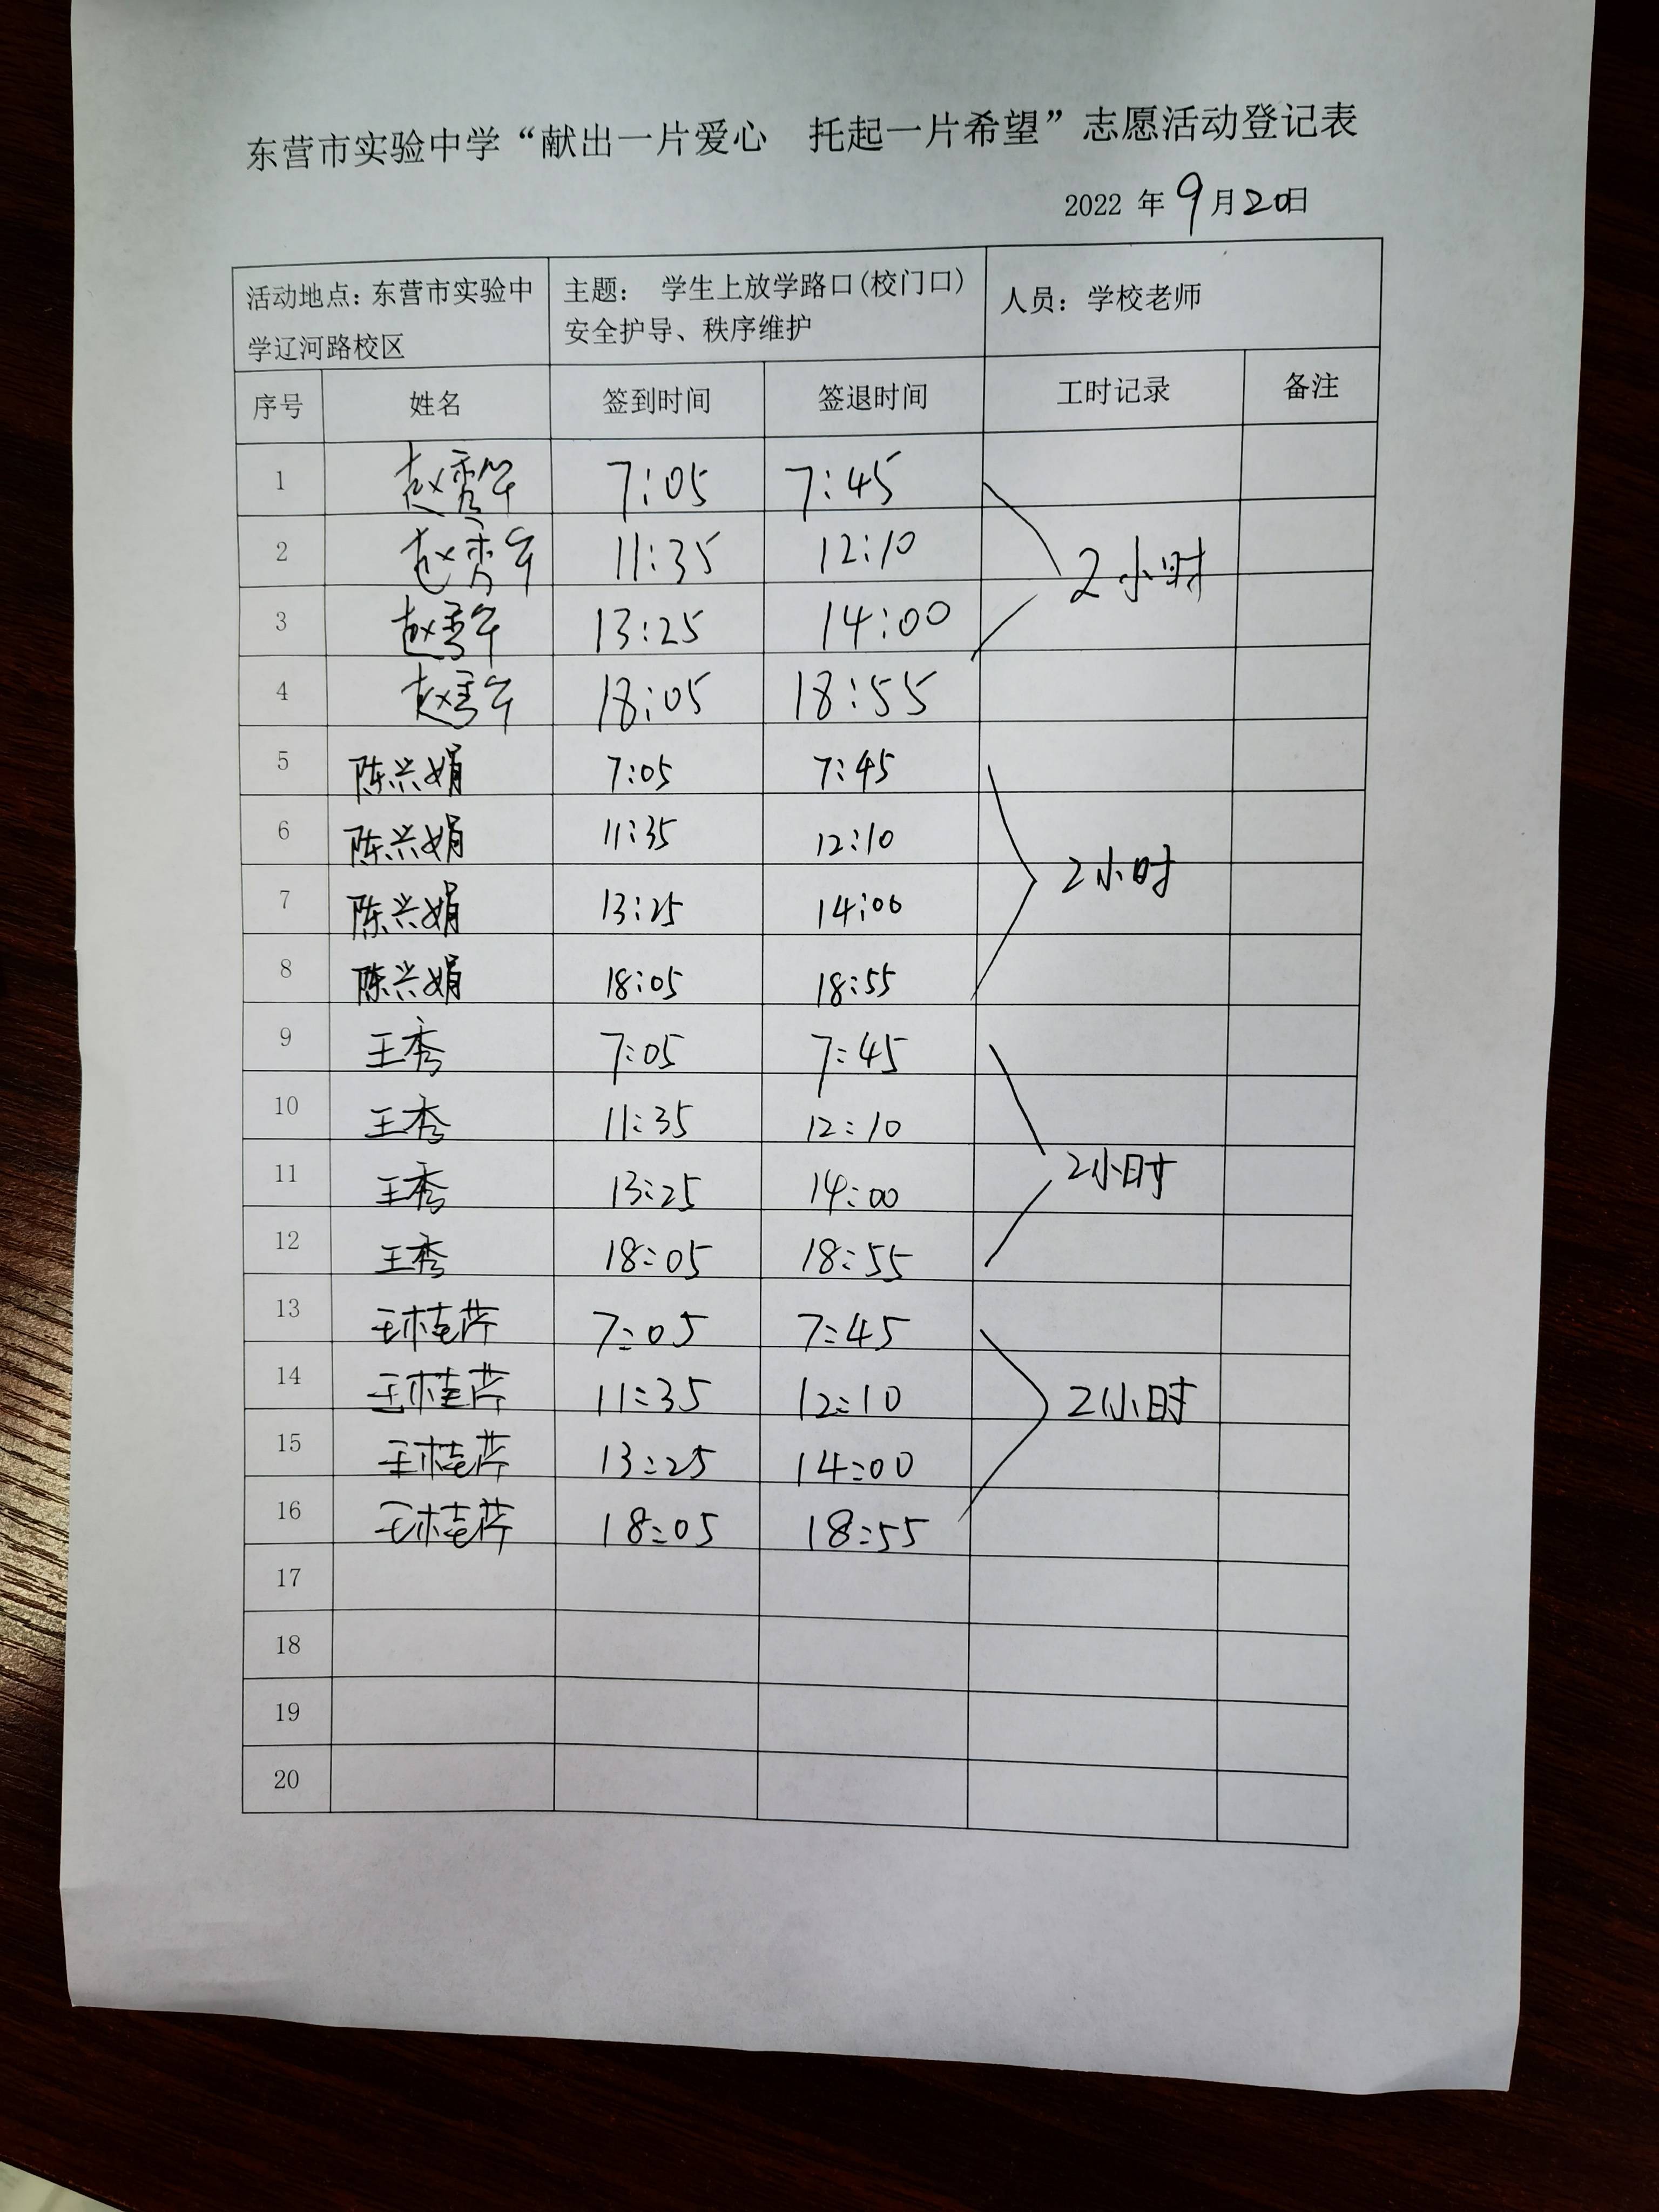 东营市实验中学“献出一片爱心 托起一片希望”志愿活动登记表
2022 年 9 月 20 日
活动地点：东营市实验中学辽河路校区 主题： 学生上放学路口(校门口)安全护导、秩序维护 人员：学校老师
序号 姓名 签到时间 签退时间 工时记录 备注
1 赵秀 7:05 7:45
2 赵秀 11:35 12:10 2小时
3 赵秀 13:25 14:00
4 赵秀 18:05 18:55
5 陈兴娟 7:05 7:45
6 陈兴娟 11:35 12:10
7 陈兴娟 13:25 14:00 2小时
8 陈兴娟 18:05 18:55
9 王秀 7:05 7:45
10 王秀 11:35 12:10
11 王秀 13:25 14:00 2小时
12 王秀 18:05 18:55
13 王桂芹 7:05 7:45
14 王桂芹 11:35 12:10 2小时
15 王桂芹 13:25 14:00
16 王桂芹 18:05 18:55
17
18
19
20